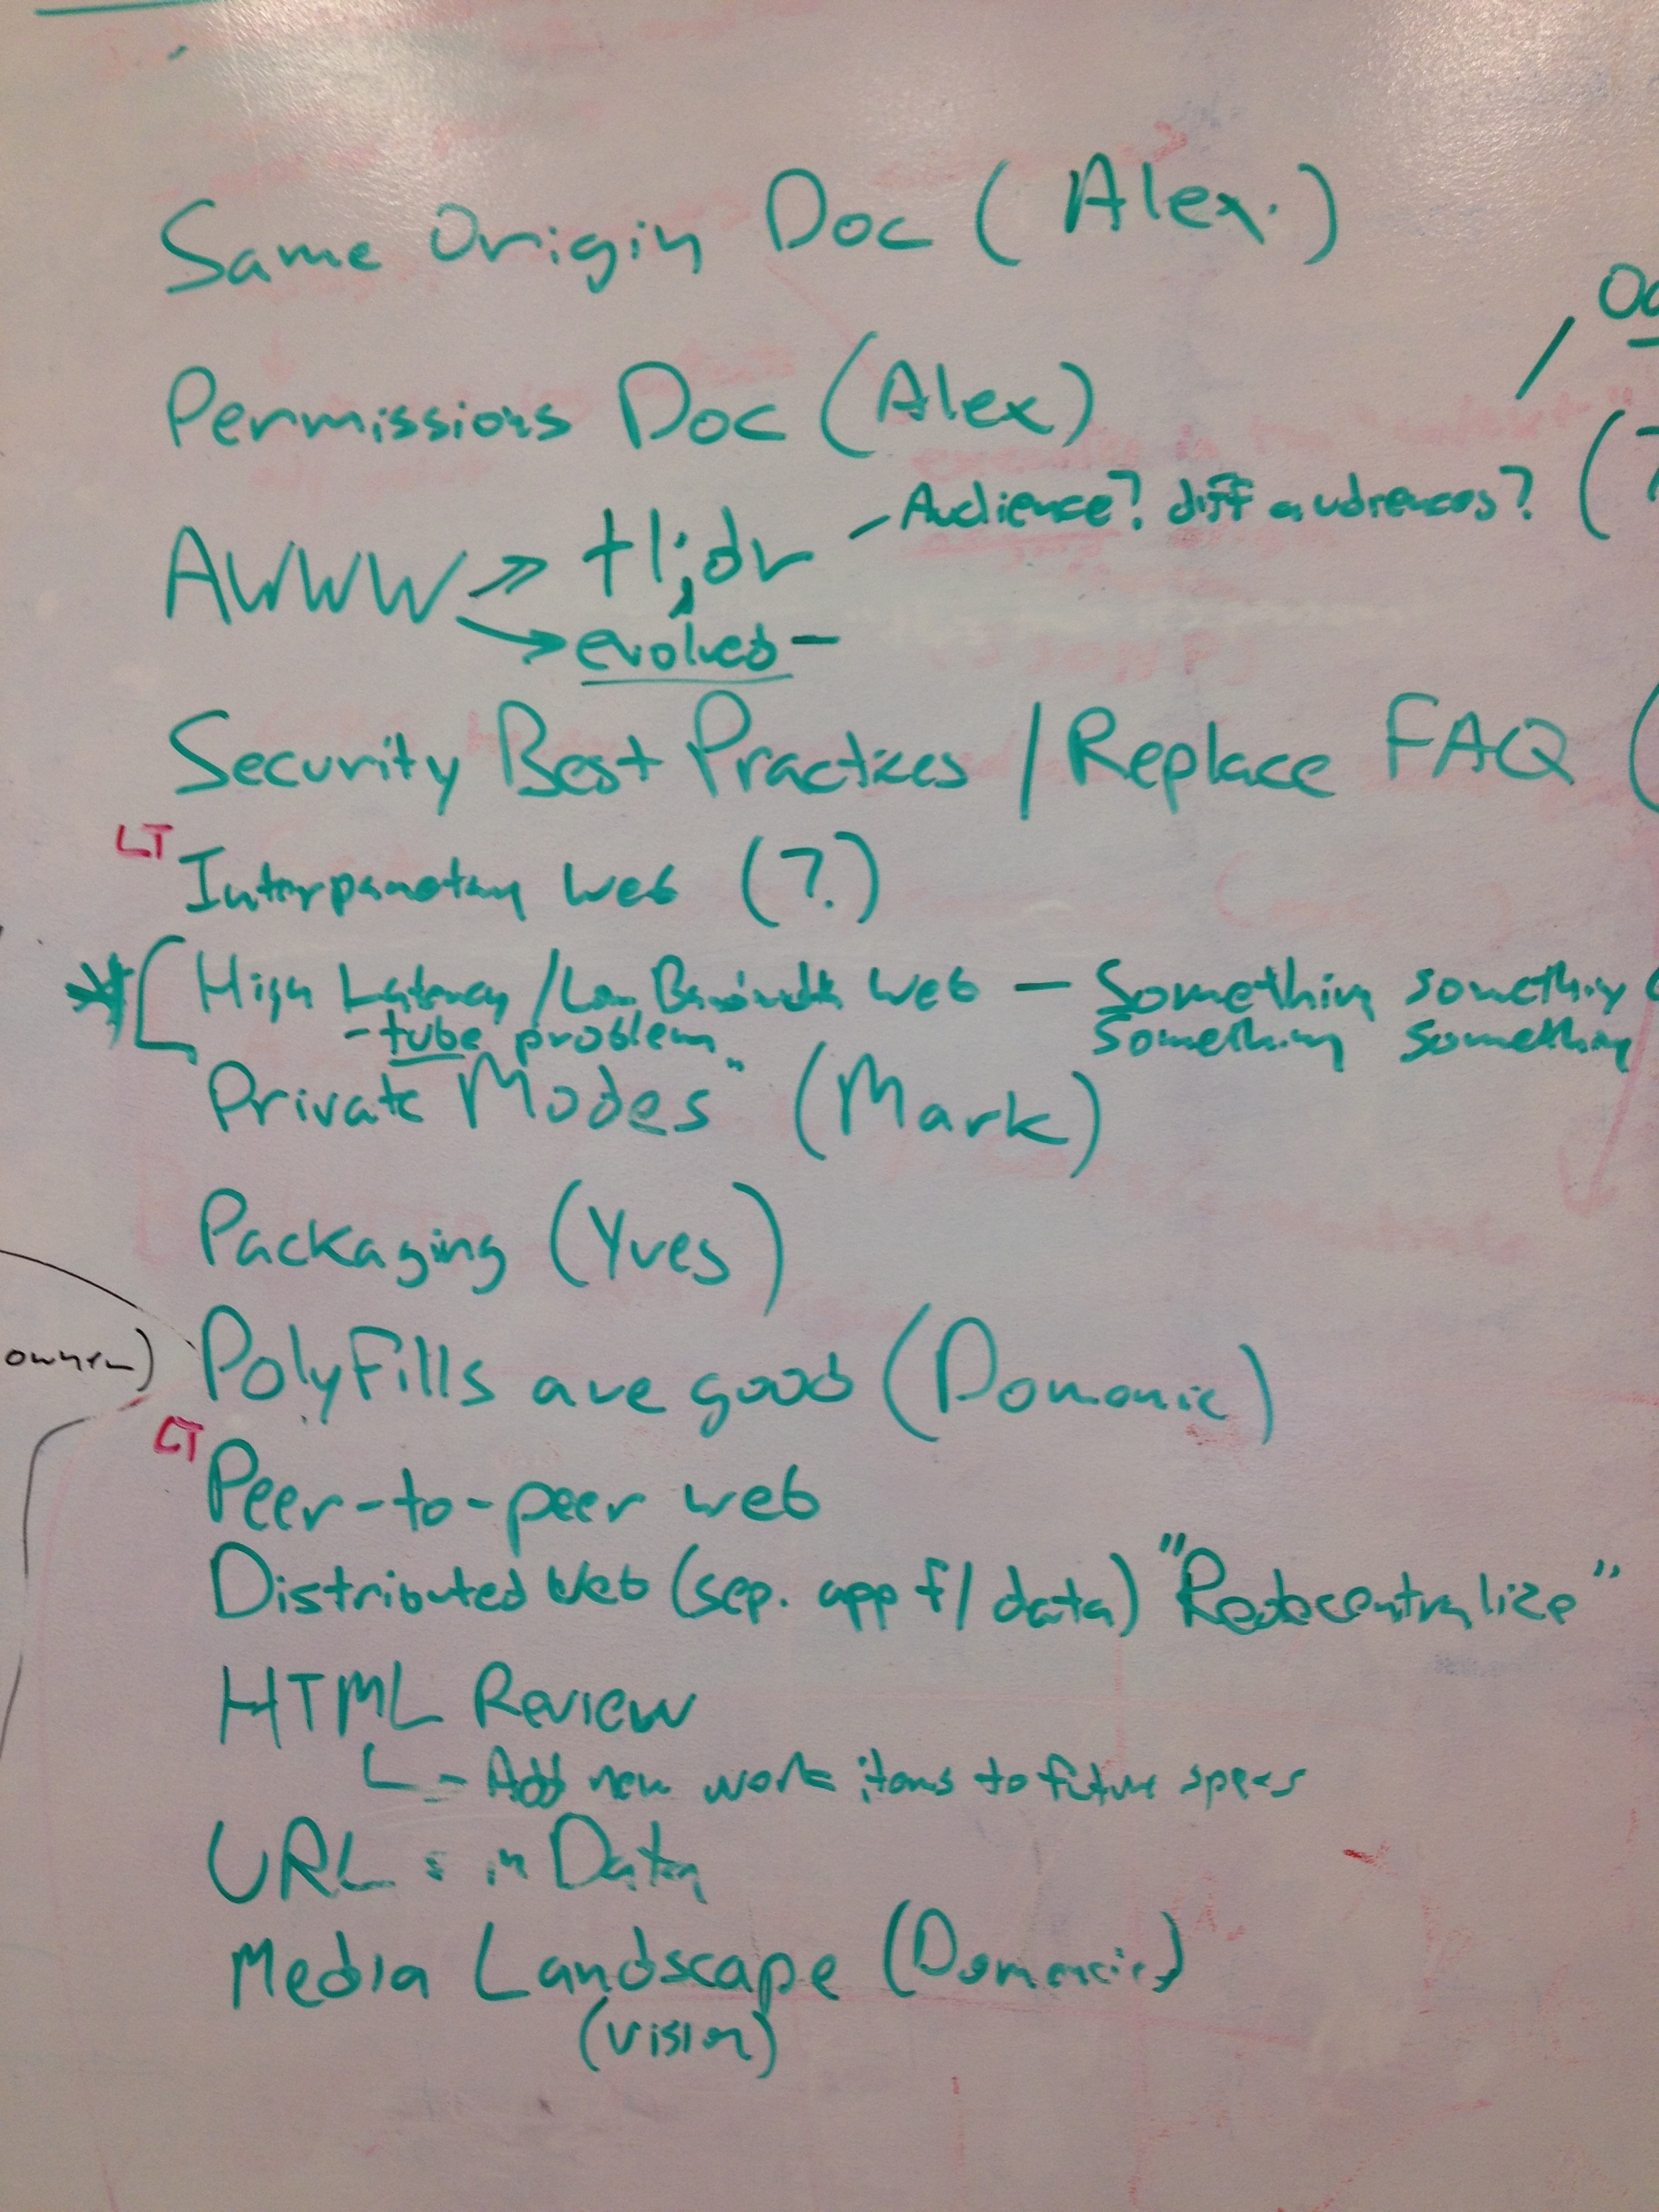 Same Origin Doc (Alex.)
Permissions Doc (Alex)
AWWW => tl;dr - Audience? diff audiences? (?
→ evolved -
Security Best Practices / Replace FAQ (
LT
Interpanetary Web (?)
* [ High Latency / Low Bandwidth Web — Something something
- tube problem Something something
"Private Modes" (Mark)
Packaging (Yves)
owner)
PolyFills are good (Domonic)
LT
Peer-to-peer web
Distributed Web (sep. app f/ data) "Redecentralize"
HTML Review
- Add new work items to future specs
URLs in Data
Media Landscape (Domenic)
(vision)